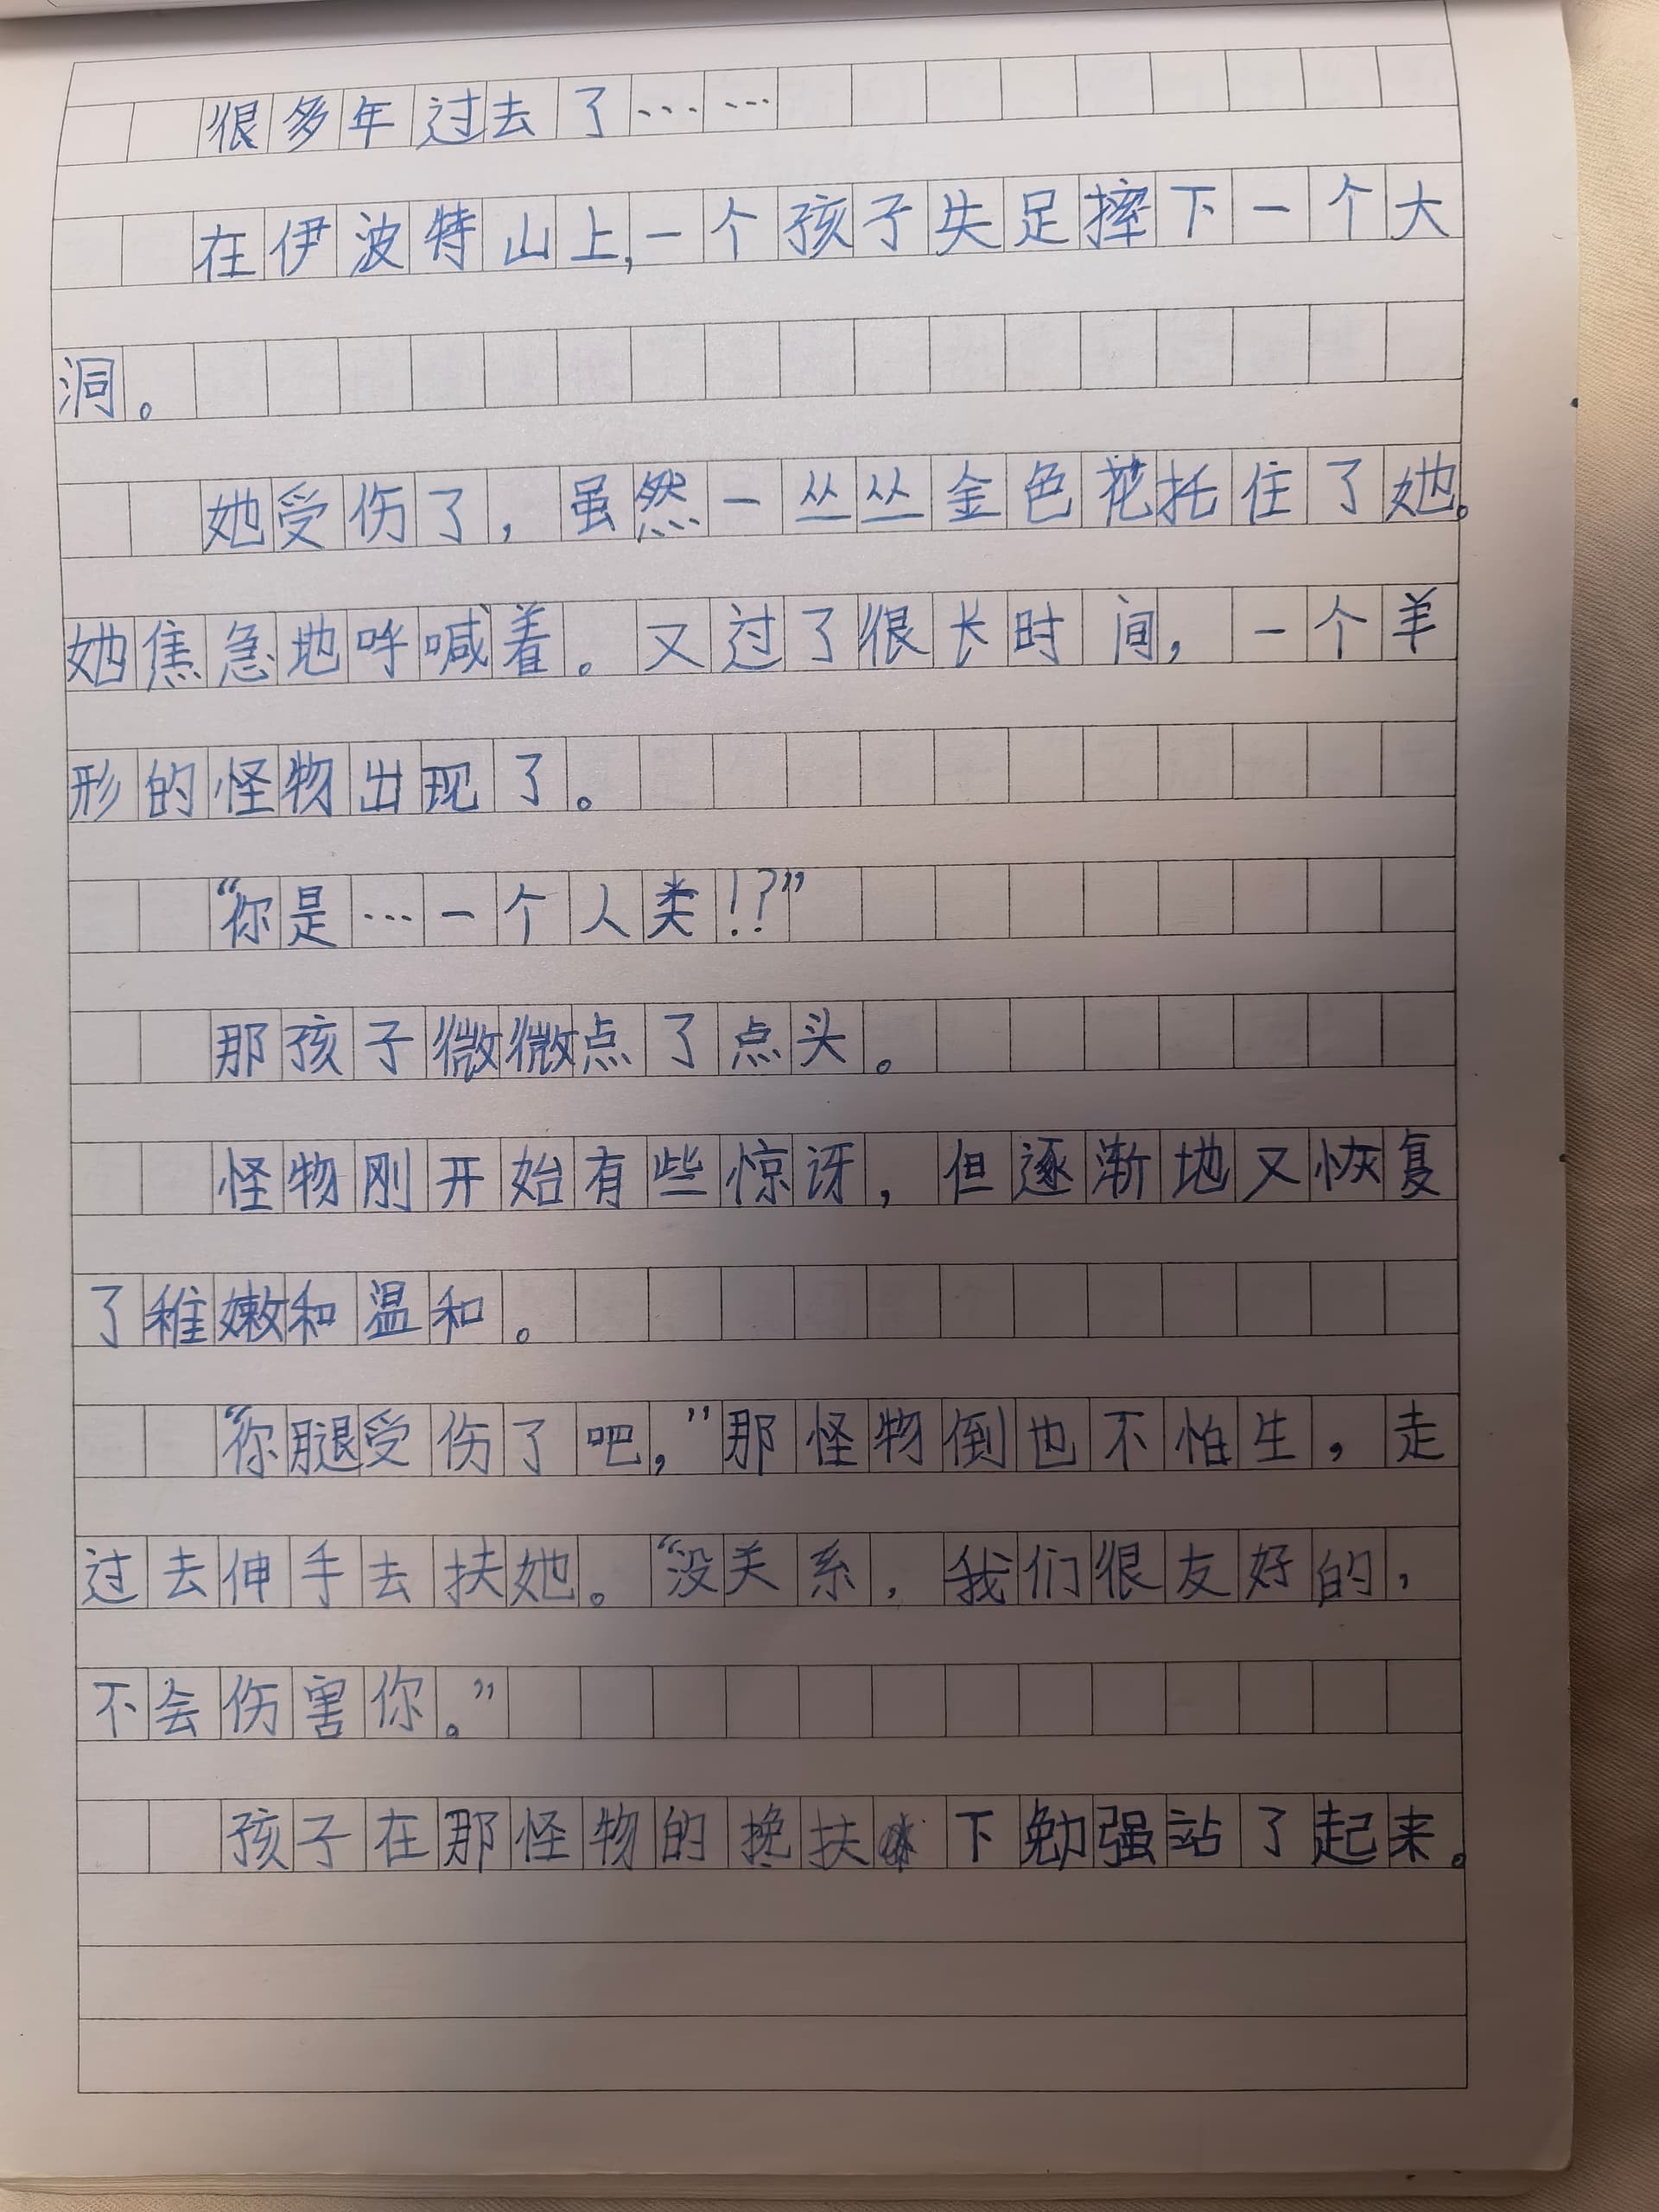 很多年过去了……
在伊波特山上,一个孩子失足摔下一个大
洞。
她受伤了，虽然一丛丛金色花托住了她。
她焦急地呼喊着。又过了很长时间，一个羊
形的怪物出现了。
“你是…一个人类!?”
那孩子微微点了点头。
怪物刚开始有些惊讶，但逐渐地又恢复
了稚嫩和温和。
“你腿受伤了吧，”那怪物倒也不怕生，走
过去伸手去扶她。“没关系，我们很友好的，
不会伤害你。”
孩子在那怪物的搀扶下勉强站了起来。